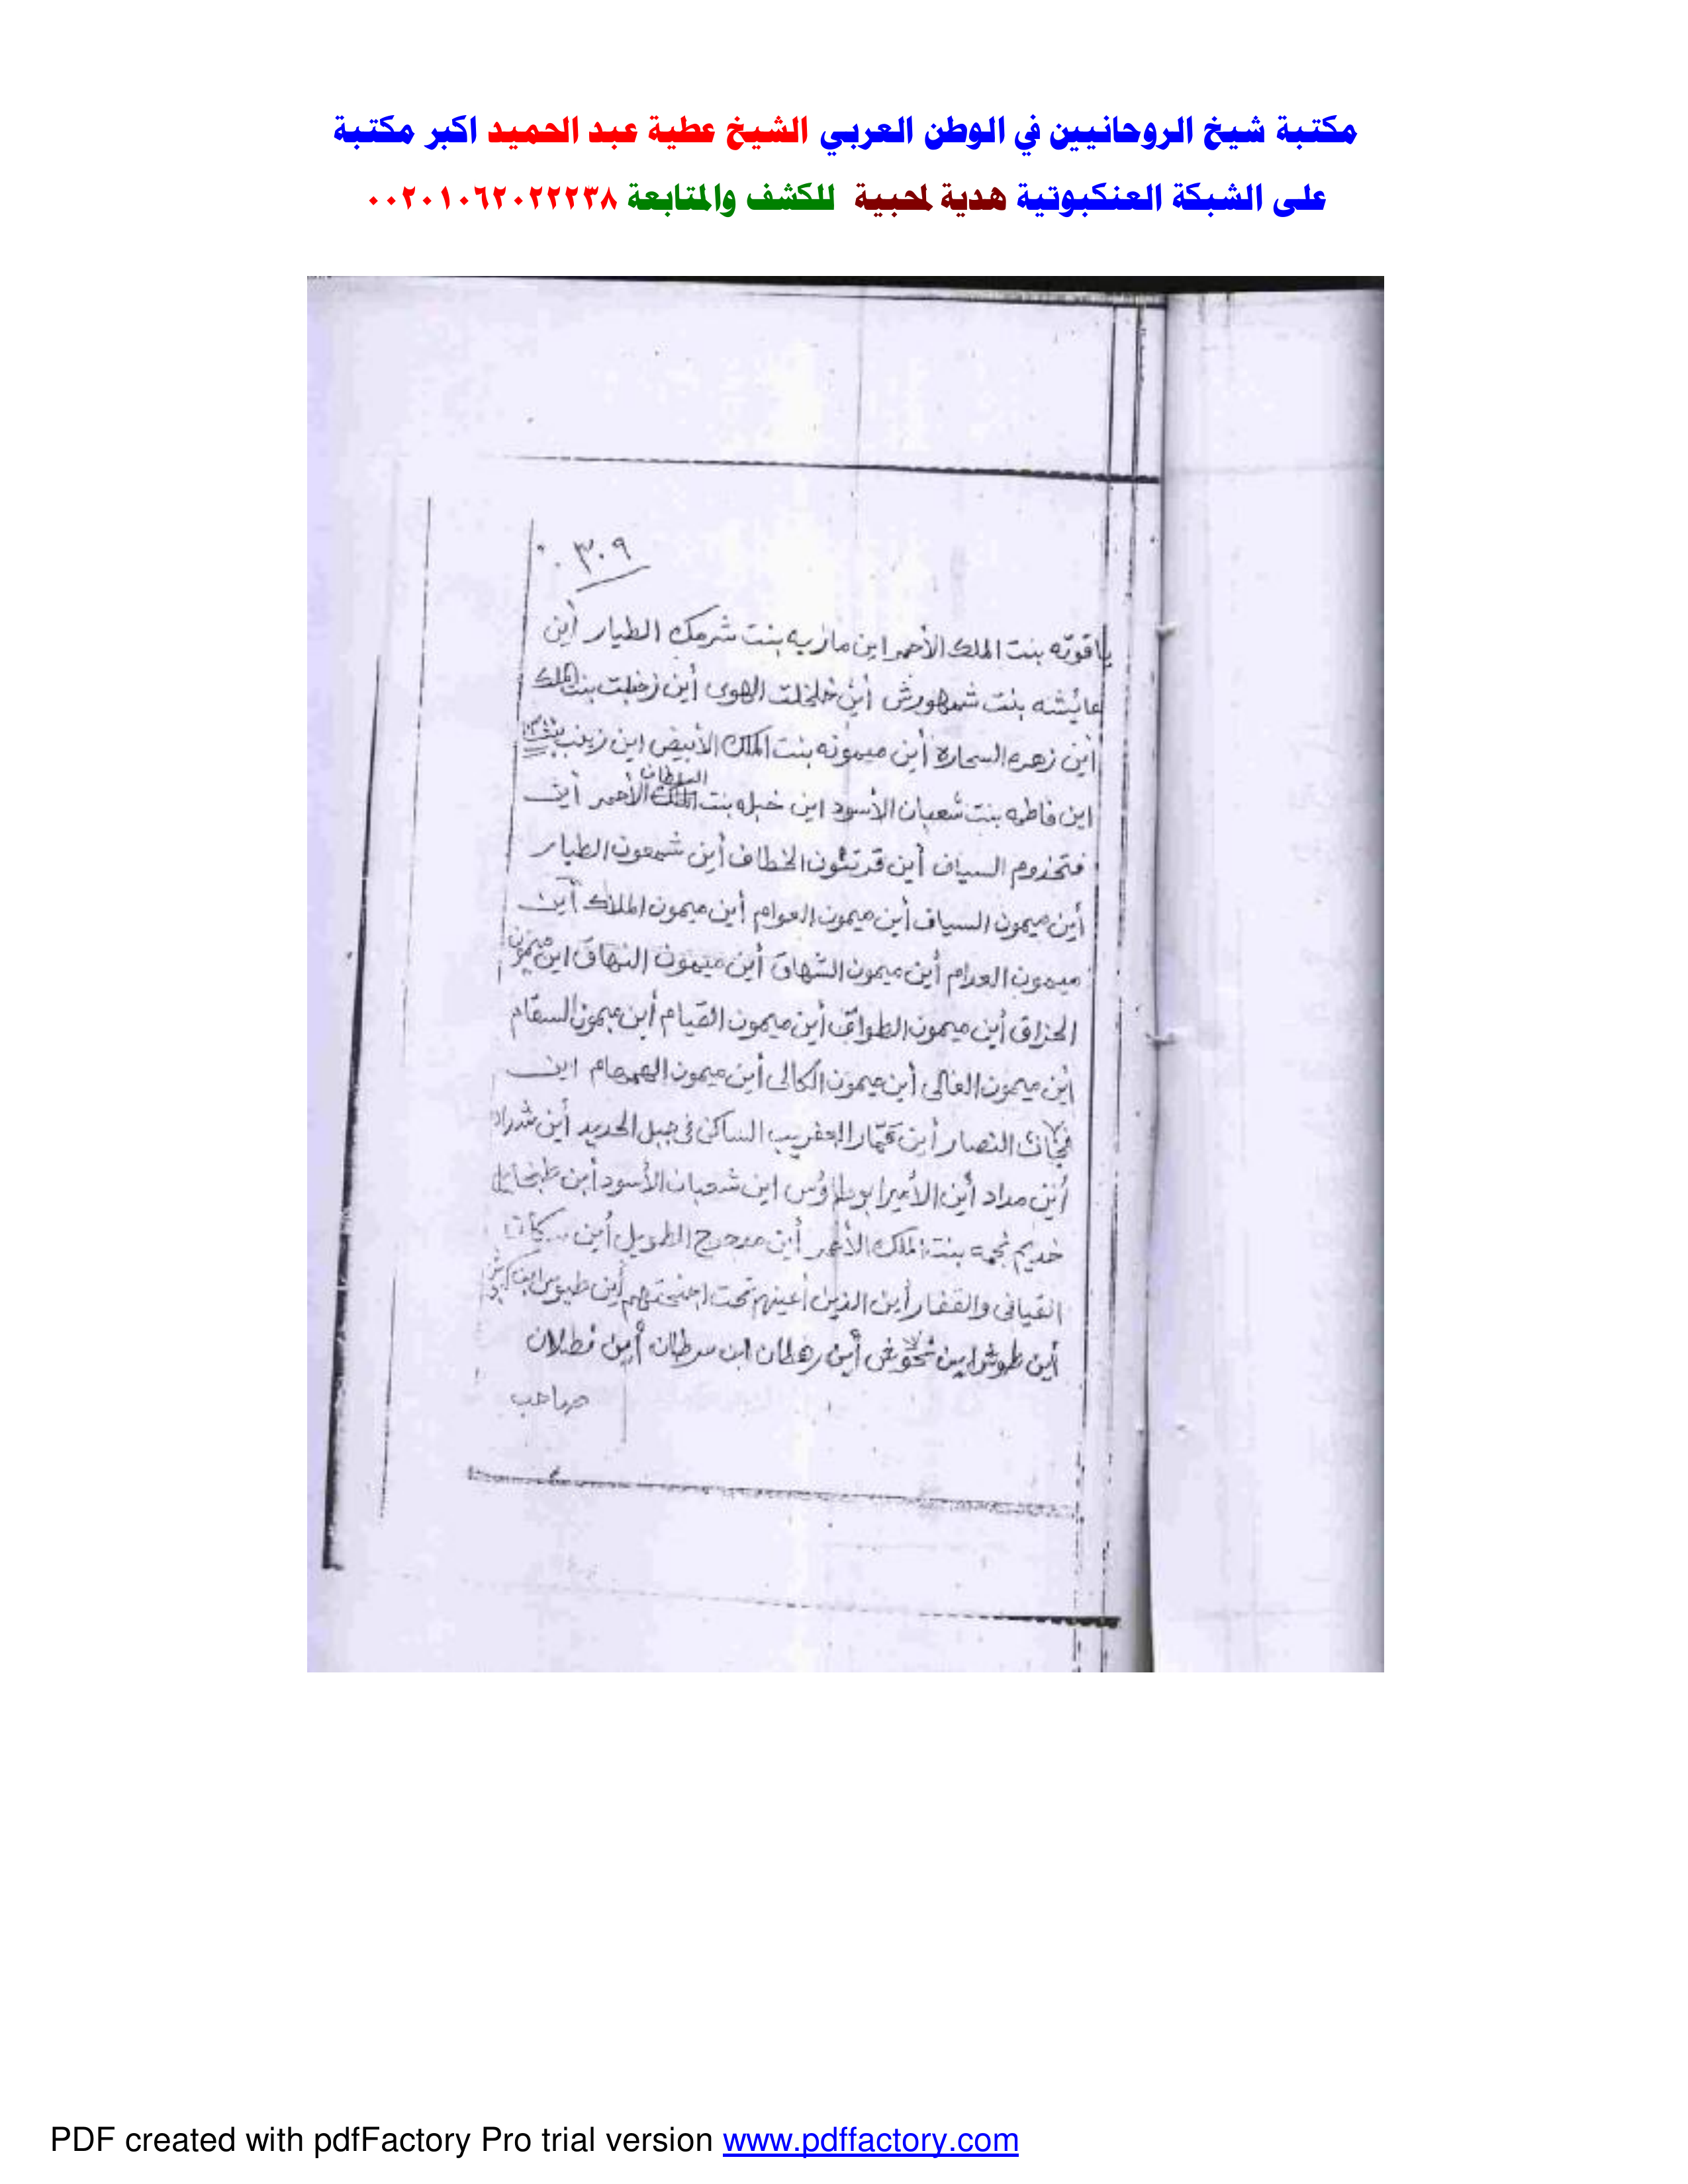 مكتبة شيخ الروحانيين في الوطن العربي الشيخ عطية عبد الحميد اكبر مكتبة
على الشبكة العنكبوتية هدية لمحبية للكشف والمتابعة ٠٠٢٠١٠٦٢٠٢٢٢٣٨
٣٠٩
ياقوته بنت الملك الأحمر اين مازيه بنت شرمك الطيار أين
عائشه بنت شمهورش أين خلخلت الهوى أين زخبلت بنت الملك
أين زهره السحارة أين ميمونه بنت الملك الأبيض اين زينب بنت
السلطان
اين فاطمه بنت شعبان الأسود اين خبله بنت الملك الأحمر أين
السياف أين الخطاف أين شمعون الطيار
أين ميمون السياف أين ميمون العوام أين ميمون الملاك أين
ميمون العرام أين ميمون الشهاق أين ميمون النهاق اين ميمون
الحزاق أين ميمون الطواف أين ميمون القيام أين ميمون السقام
اين ميمون الغالى أين ميمون الكالى أين ميمون الهمهام اين
النصار أين العفريب الساكن فى جبل الحديد أين شداد
أين مداد أين الأمير ابو طاؤس اين شعبان الأسود أين
خديم نجمه بنت الملك الأحمر أين الطويل أين
الفيافى والقفار أين الذين أعينهم تحت اجنحتهم أين طيوس
أين طوش اين أين رهطان اين سرطان أين فطلان
صاحب
PDF created with pdfFactory Pro trial version www.pdffactory.com